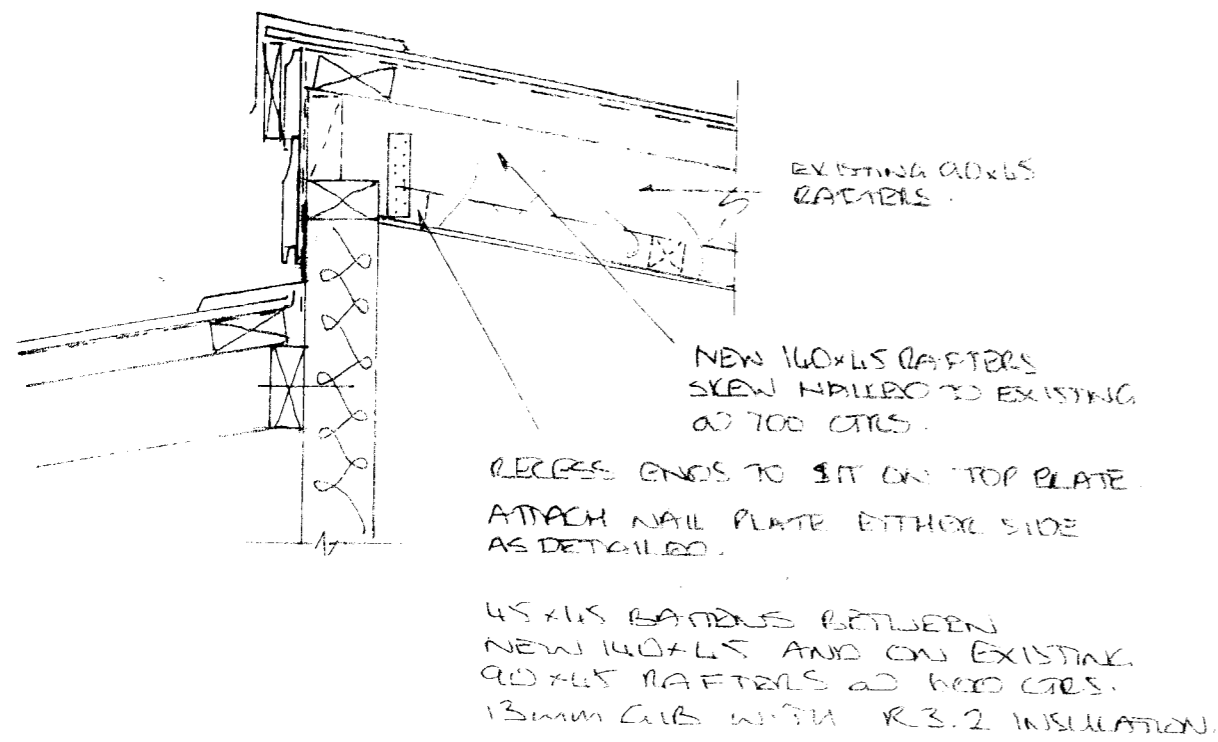 EXISTING 90x45
RAFTERS.
NEW 140x45 RAFTERS
SKEW NAILED TO EXISTING
@ 700 CTRS.
RECESS ENDS TO SIT ON TOP PLATE.
ATTACH NAIL PLATE EITHER SIDE
AS DETAILED.
45x45 BATTENS BETWEEN
NEW 140x45 AND ON EXISTING
90x45 RAFTERS @ 600 CTRS.
13mm GIB WITH R3.2 INSULATION.